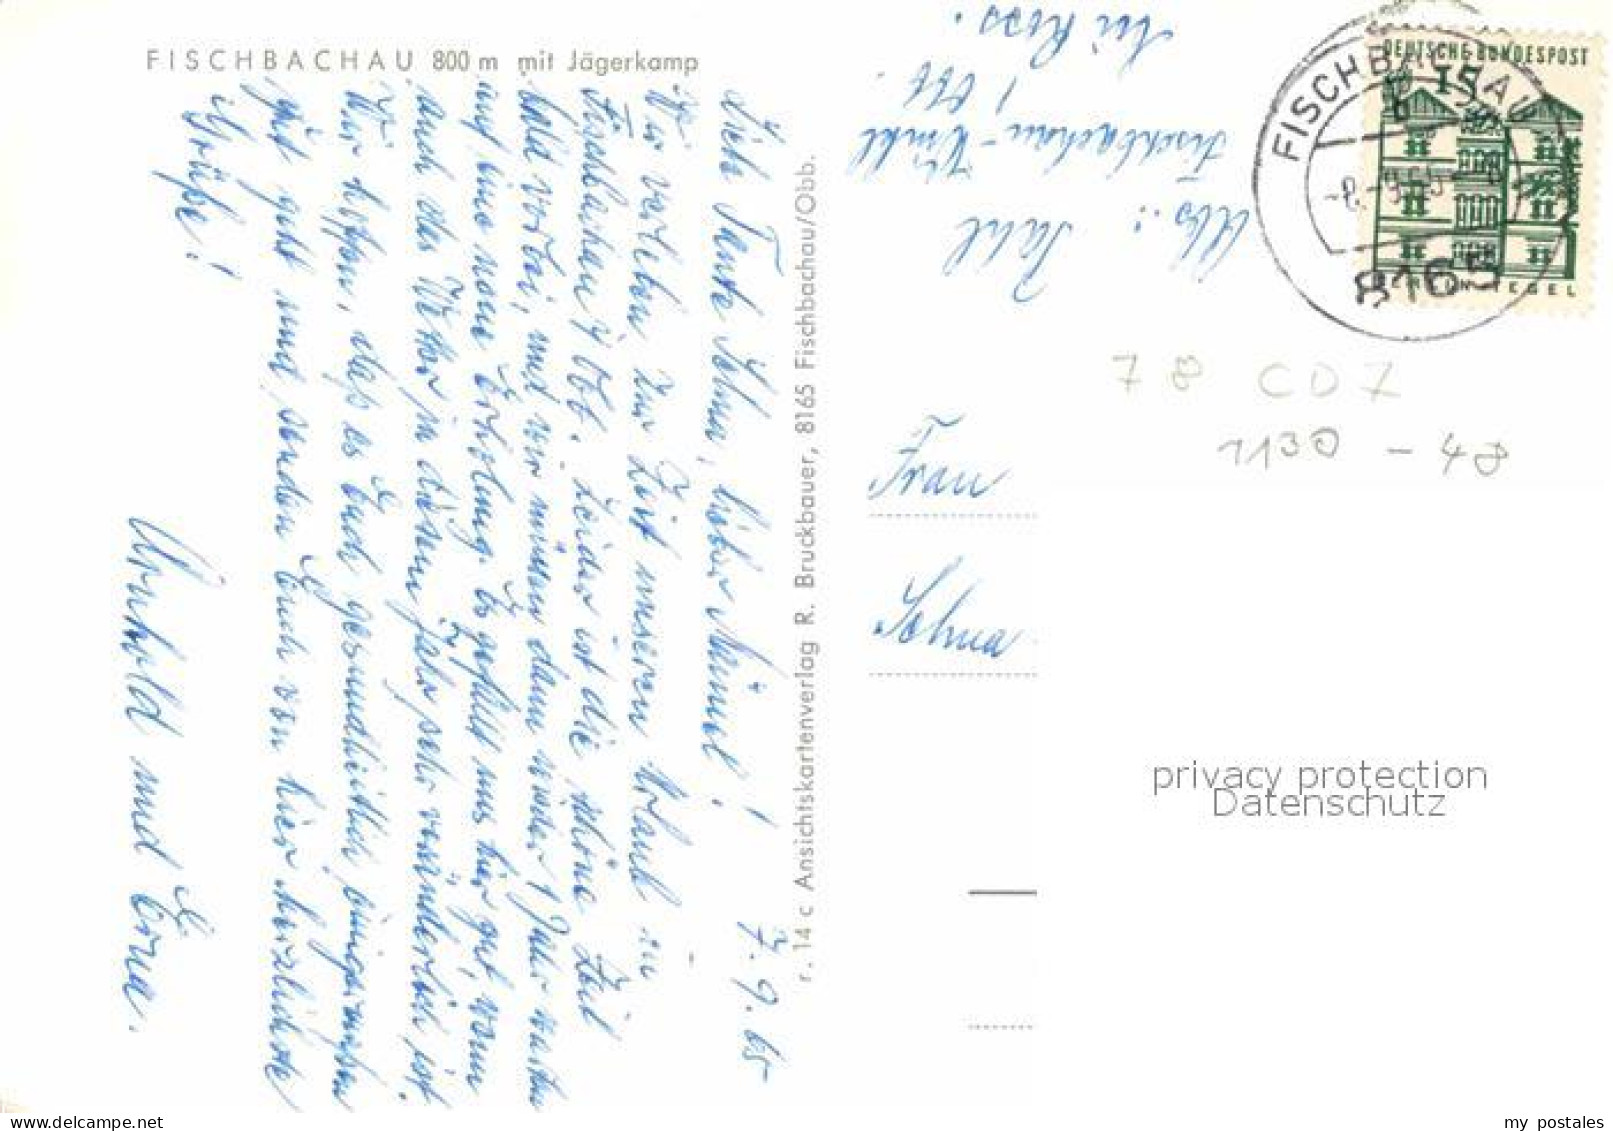 FISCHBACHAU 800 m mit Jägerkamp
7. 9. 65
Liebe Tante Selma, lieber Meinel!
Wir verleben zur Zeit unseren Urlaub in
Fischbachau / Obb. Leider ist die schöne Zeit
bald vorbei, und wir müssen dann wieder 1 Jahr warten
auf eine neue Erholung. Es gefällt uns hier gut, wenn
auch das Wetter in diesem Jahr sehr veränderlich ist.
Wir hoffen, daß es Euch gesundheitlich einigermaßen
gut geht und senden Euch von hier herzlichste
Grüße!
Arnhold und Erna.
r. 14 c Ansichtskartenverlag R. Bruckbauer, 8165 Fischbachau/Obb.
Abs.:
Fischbachau-Winkl
/ Obb.
DEUTSCHE BUNDESPOST
15
BERLIN-TEGEL
FISCHBACHAU
b
8165
78 CD7
1130 - 48
Frau
privacy protection
Datenschutz
www.delcampe.net
my_postales